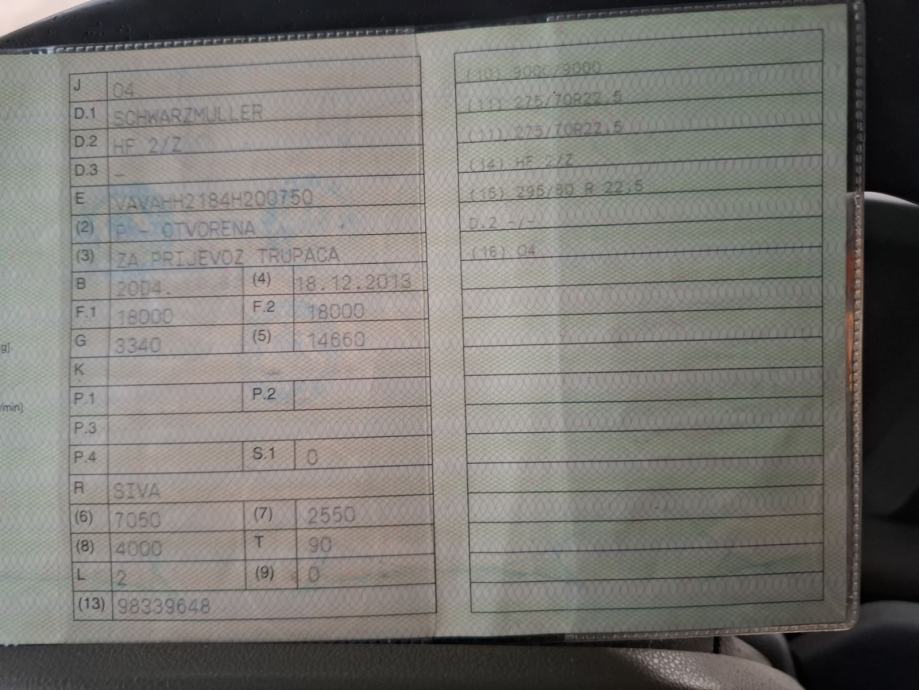 J 04
D.1 SCHWARZMULLER
D.2 HF 2/Z
D.3 –
E VAVAHH2184H200750
(2) P - OTVORENA
(3) ZA PRIJEVOZ TRUPACA
B 2004. (4) 18.12.2013
F.1 18000 F.2 18000
G 3340 (5) 14660
K –
P.1 P.2
P.3
P.4 S.1 0
R SIVA
(6) 7050 (7) 2550
(8) 4000 T 90
L 2 (9) 0
(13) 98339648
g]
/min]
(10) 9000/9000
(11) 275/70R22,5
(11) 275/70R22,5
(14) HF 2/Z
(15) 295/80 R 22,5
D.2 -/-
(16) 04